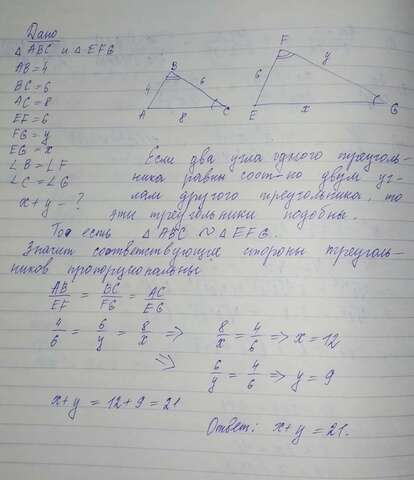 Дано
△ ABC и △ EFG
AB = 4
BC = 6
AC = 8
EF = 6
FG = y
EG = x
∠B = ∠F
∠C = ∠G
x+y - ?
B
4
6
A
8
C
F
6
y
E
x
G
Если два угла одного треуголь-
ника равны соот-но двум уг-
лам другого треугольника, то
эти треугольники подобны.
То есть △ ABC ∾ △ EFG.
Значит соответствующие стороны треуголь-
ников пропорциональны
AB/EF = BC/FG = AC/EG
4/6 = 6/y = 8/x ⇒ 8/x = 4/6 ⇒ x = 12
⇒ 6/y = 4/6 ⇒ y = 9
x+y = 12+9 = 21
Ответ: x+y = 21.